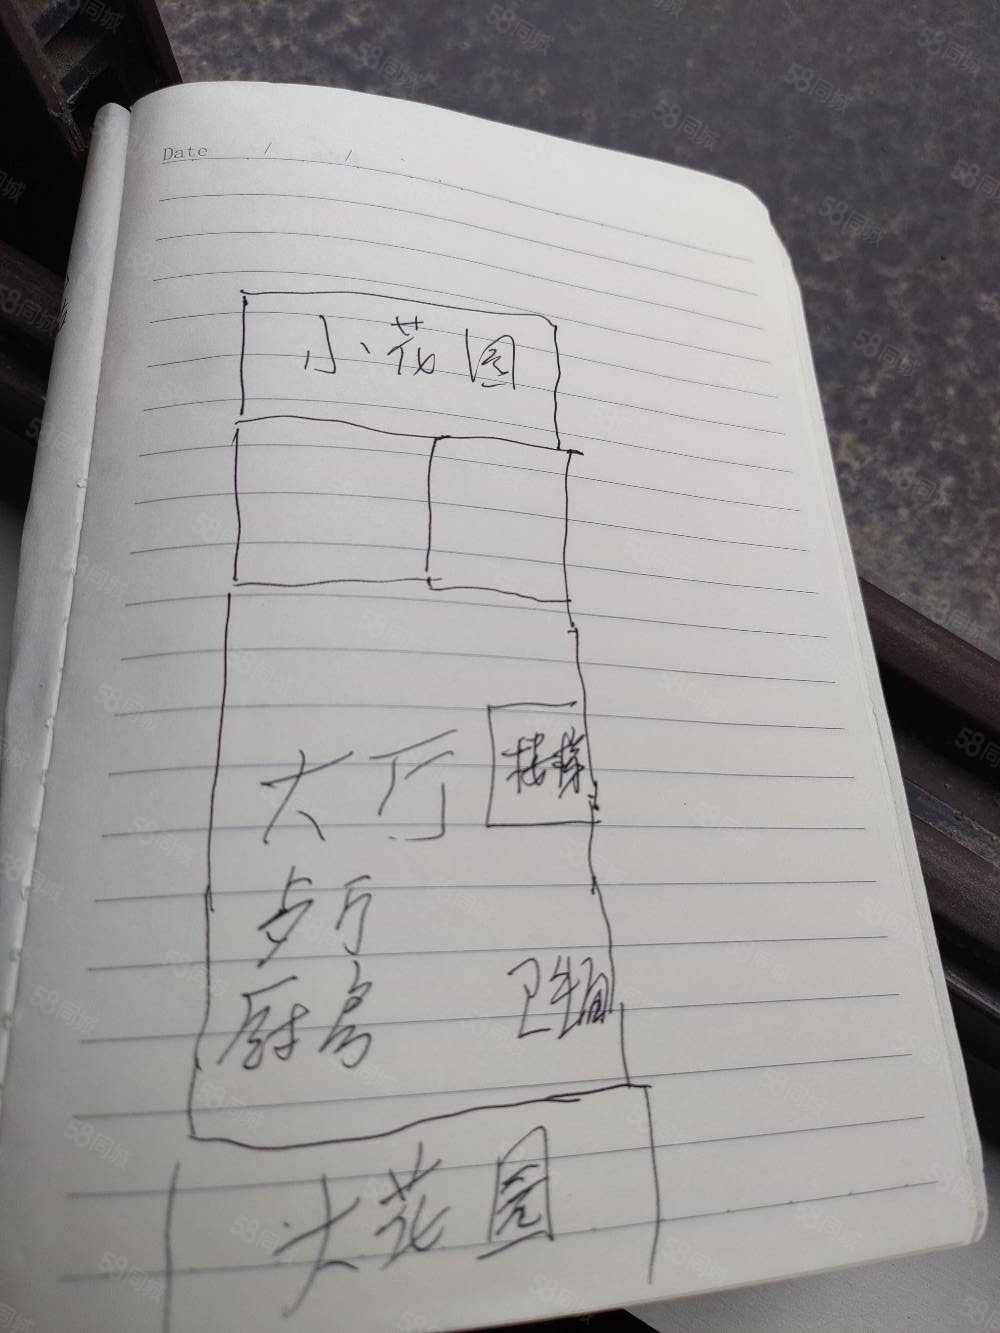 Date / /
小花园
大厅
楼梯
歺厅
厨房
卫生间
大花园
58同城